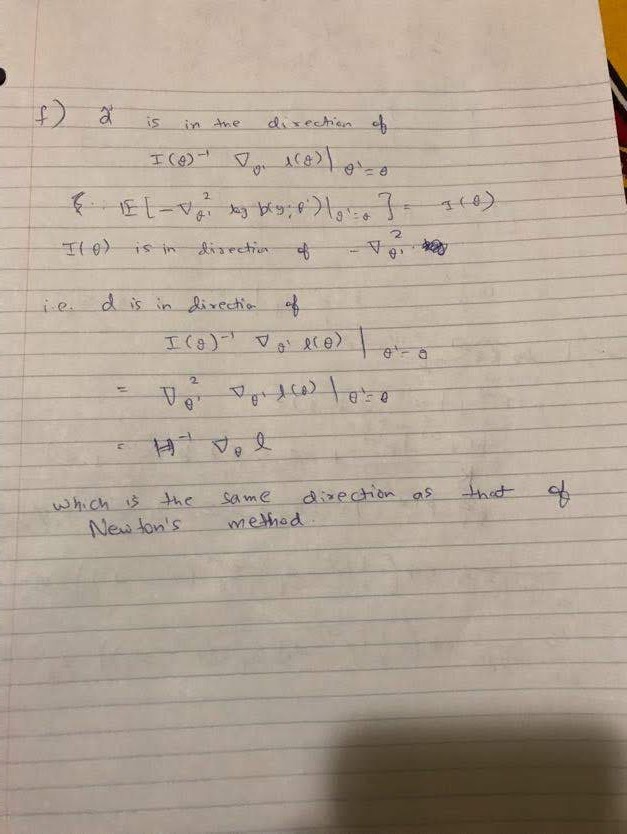 f) d̃ is in the direction of
I(θ)⁻¹ ∇θ' l(θ)|θ'=θ
{∵ 𝔼[-∇²θ' log p(y;θ')|θ'=θ] = I(θ)
I(θ) is in direction of -∇²θ'
i.e. d is in direction of
I(θ)⁻¹ ∇θ' l(θ) |θ'=θ
= ∇²θ' ∇θ' l(θ) |θ'=θ
= H⁻¹ ∇θ l
which is the same direction as that of
Newton's method.